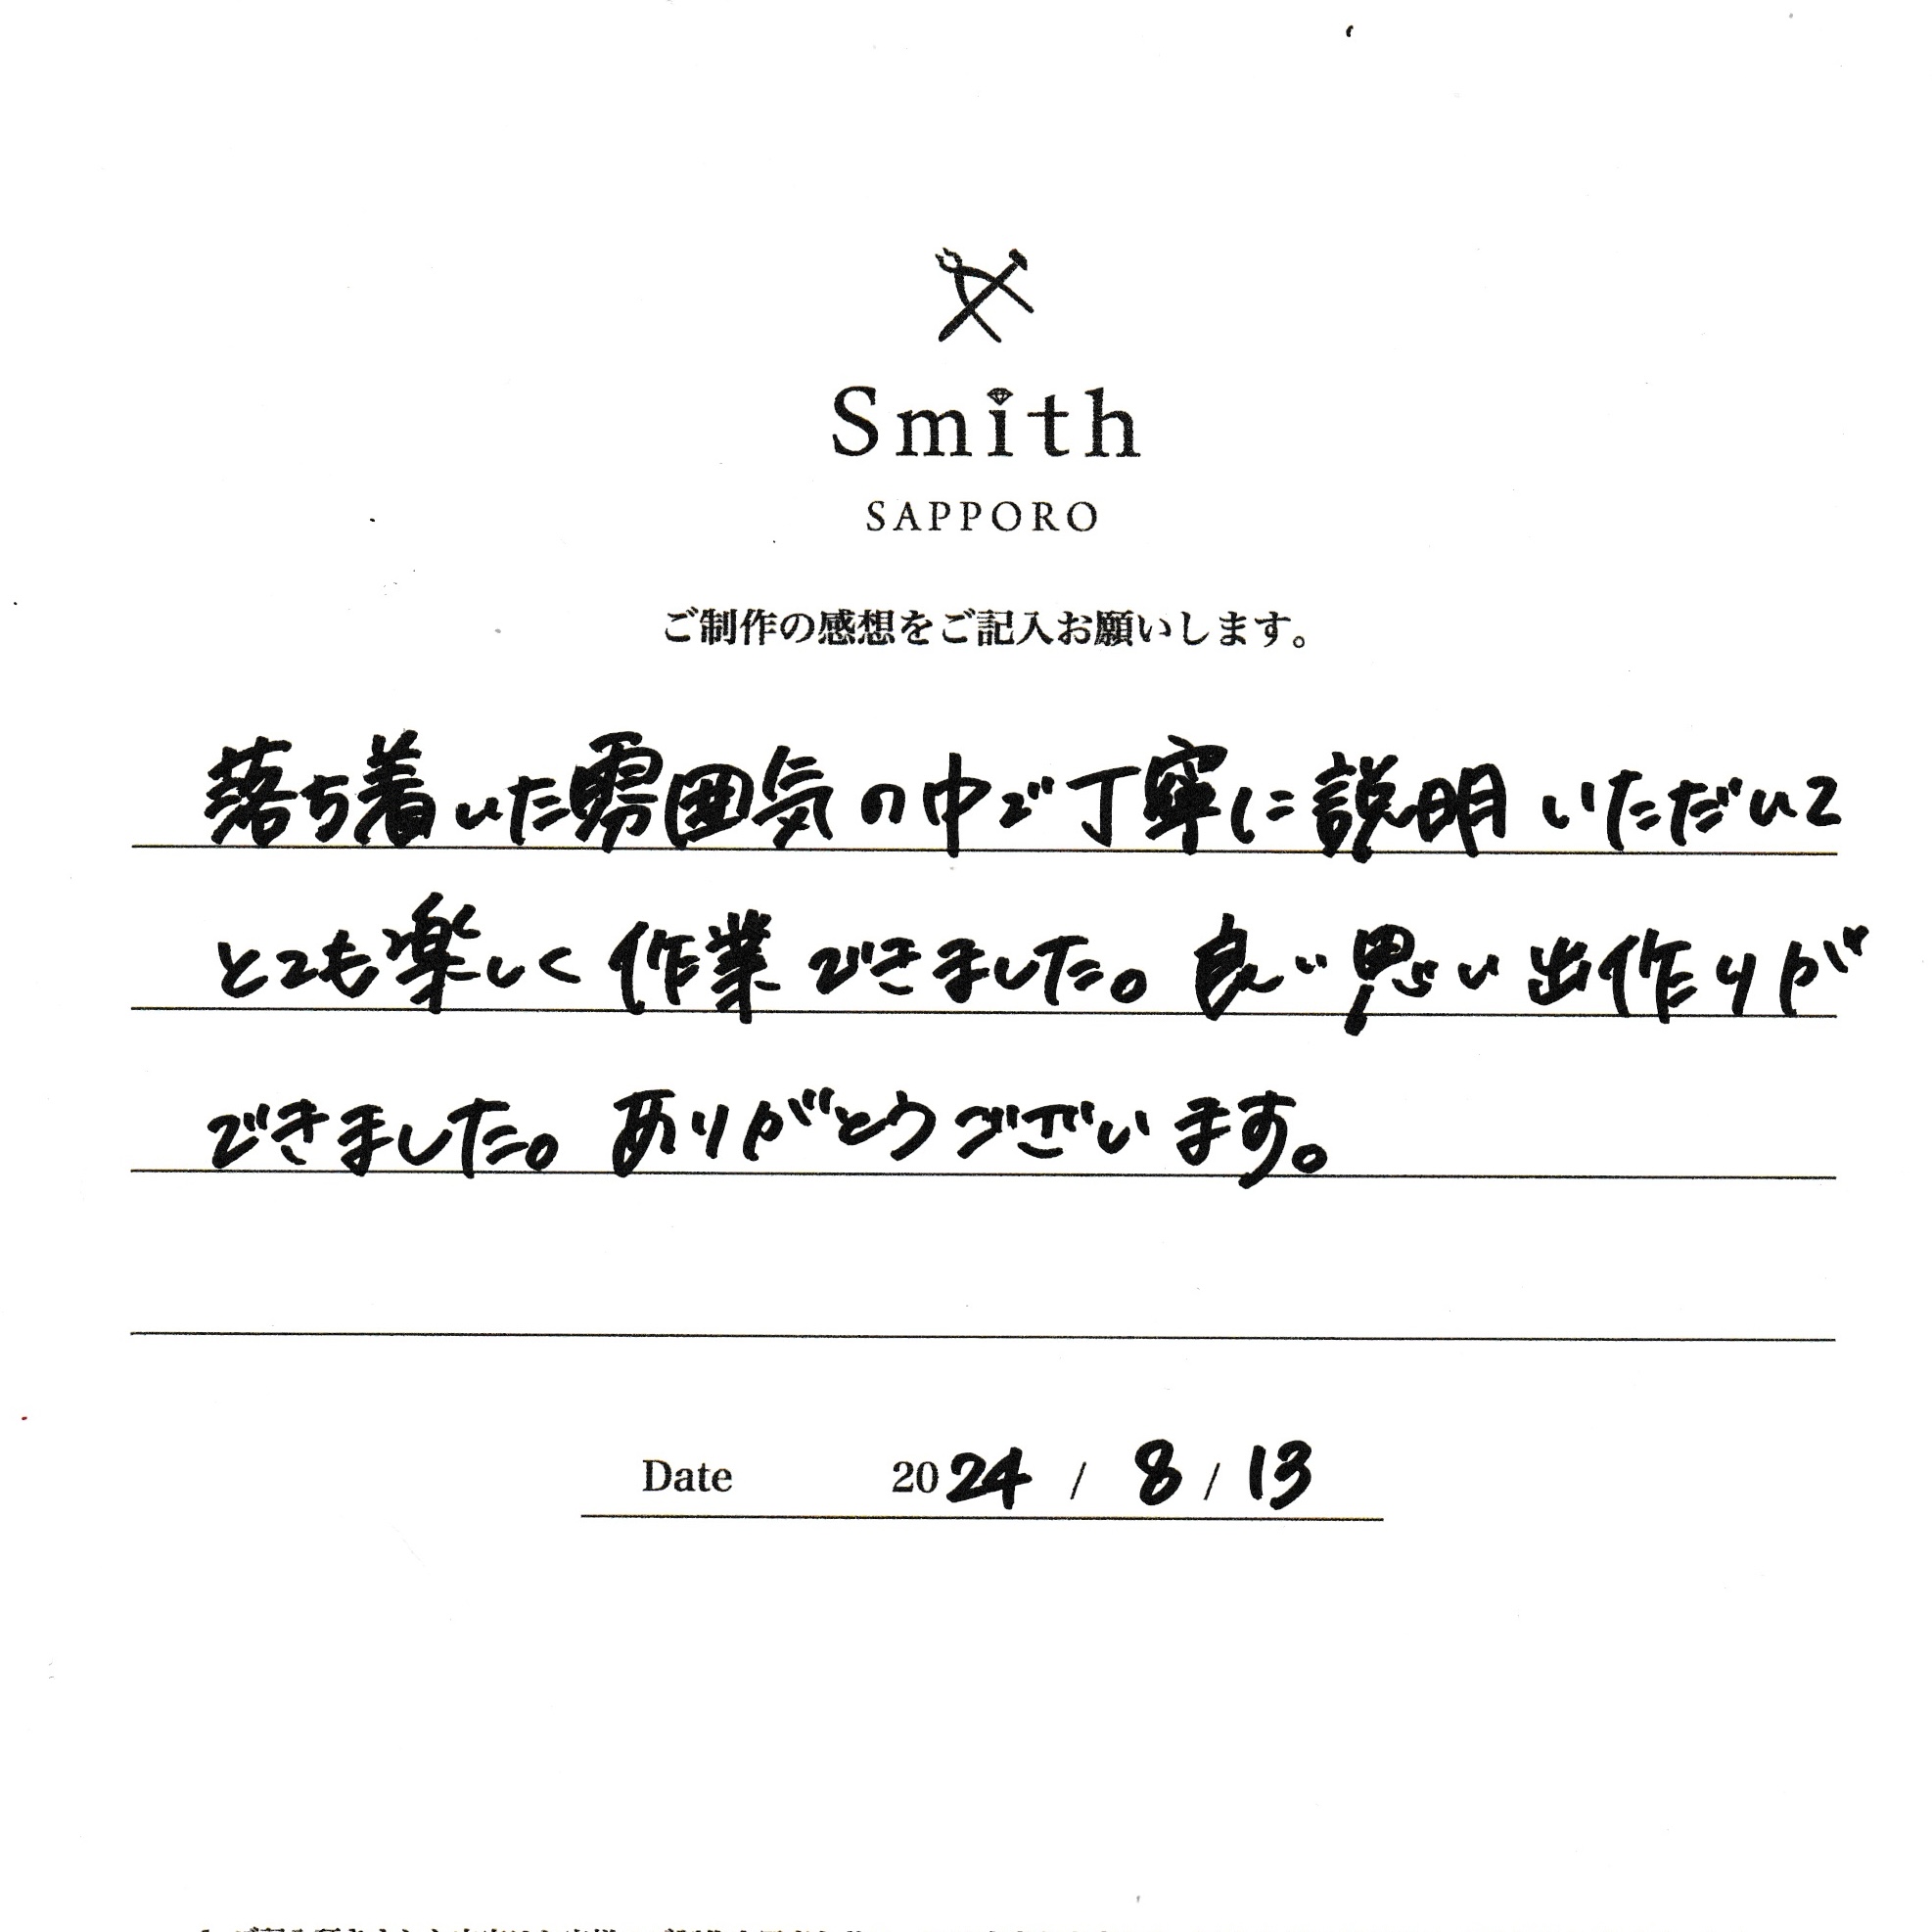 Smith
SAPPORO
ご制作の感想をご記入お願いします。
落ち着いた雰囲気の中で丁寧に説明いただいて
とても楽しく作業できました。良い思い出作りが
できました。ありがとうございます。
Date 2024 / 8 / 13